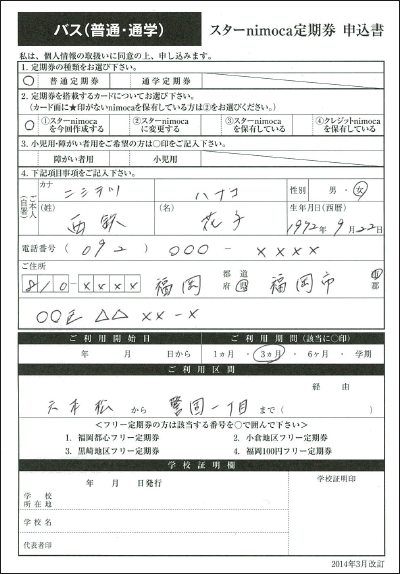 バス(普通・通学) スターnimoca定期券 申込書
私は、個人情報の取扱いに同意の上、申し込みます。
1. 定期券の種類をお選び下さい。
○ 普通定期券 通学定期券
2. 定期券を搭載するカードについてお選び下さい。
(カード面に★印がないnimocaを保有している方は②をお選びください。)
○ ①スターnimocaを今回作成する ②スターnimocaに変更する ③スターnimocaを保有している ④クレジットnimocaを保有している
3. 小児用・障がい者用をご希望の方は○印をご記入下さい。
障がい者用 小児用
4. 下記項目事項をご記入下さい。
ご本人(自署)
カナ ニシテツ ハナコ 性別 男・女
(姓) 西鉄 (名) 花子 生年月日(西暦)
1972年 9月 22日
電話番号 (092) 000 - ××××
ご住所
810-×××× 福岡 都道府県 福岡市 郡
○○区 △△ ××-×
ご利用開始日 ご利用期間(該当に○印)
年 月 日から 1ヵ月・3ヵ月・6ヶ月・学期
ご利用区間
経由
六本松 から 警固一丁目 まで( )
<フリー定期券の方は該当する番号を○で囲んで下さい>
1. 福岡都心フリー定期券 2. 小倉地区フリー定期券
3. 黒崎地区フリー定期券 4. 福岡100円フリー定期券
学校証明欄
年 月 日発行 学校証明印
学校所在地
学校名
代表者印
2014年3月改訂